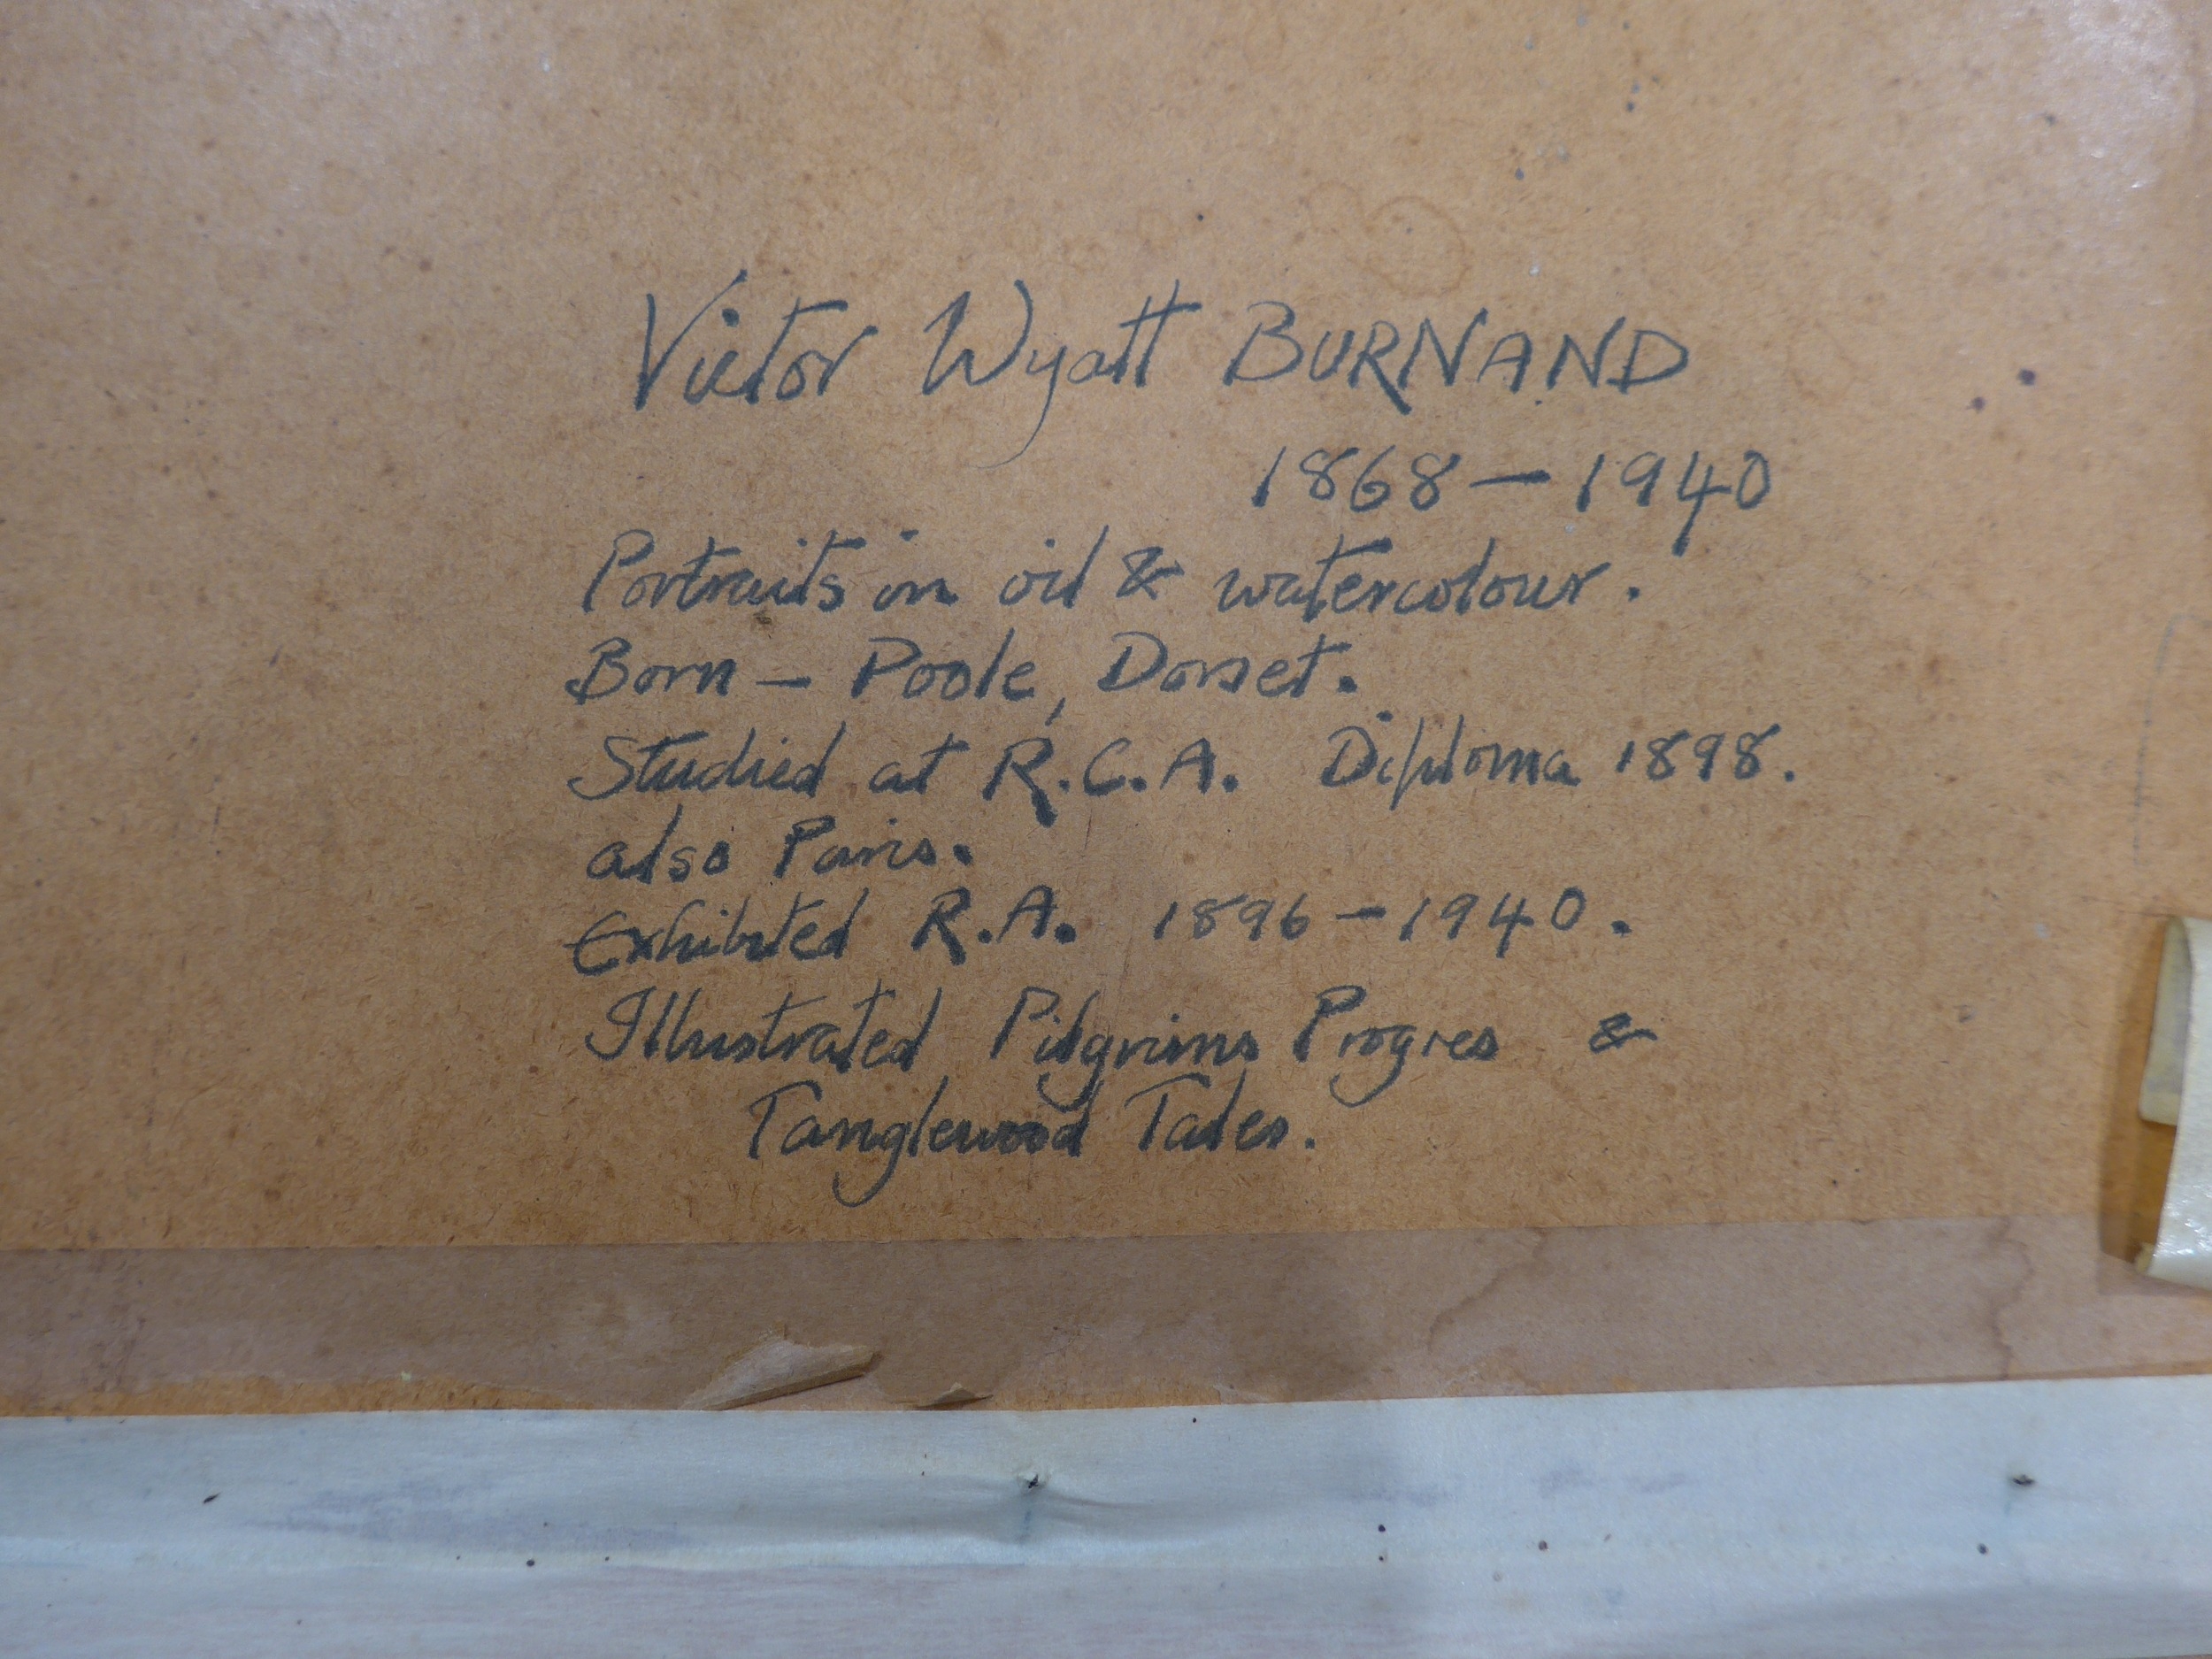 Victor Wyatt BURNAND
1868 - 1940
Portraits in oil & watercolour.
Born - Poole, Dorset.
Studied at R.C.A. Diploma 1898.
also Paris.
Exhibited R.A. 1896 - 1940.
Illustrated Pilgrims Progres &
Tanglewood Tales.